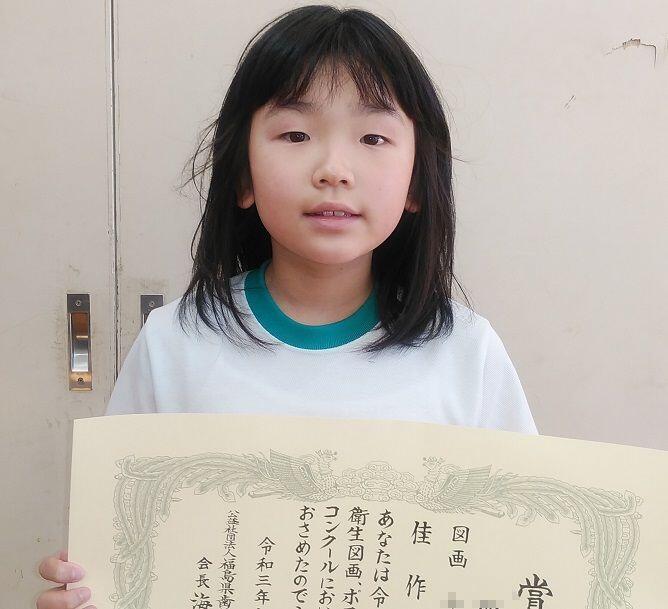 賞
図画
佳作
あなたは令
衛生図画、ポ
コンクールにお
おさめたので
令和三年
公益社団法人福島県南
会長